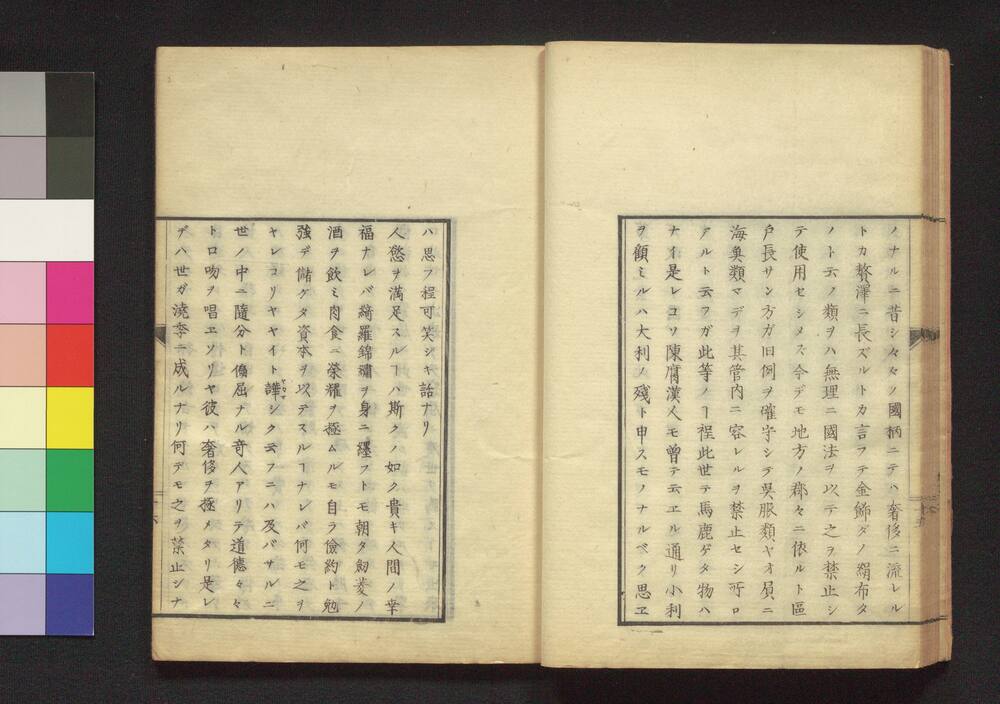 ノナルニ昔シ々々ノ國柄ニテハ奢侈ニ流レル
トカ贅澤ニ長ズルトカ言フテ金飾ダノ絹布タ
ノト云ノ類ヲハ無理ニ國法ヲ以テ之ヲ禁止シ
テ使用セシメズ今デモ地方ノ郡々ニ依ルト區
戸長サン方ガ旧例ヲ確守シテ吳服類ヤオ負ニ
海魚類マデヲ其管内ニ容レルヲ禁止セシ所ロ
アルト云フガ此等ノヿ程此世テ馬鹿ゲタ物ハ
ナイ是レコソ陳腐漢人モ曾テ云エル通リ小利
ヲ顧ミルハ大利ノ殘ト申スモノナルベク思エ
ハ思フ程可笑シキ話ナリ
人慾ヲ満足スルヿハ斯クノ如ク貴キ人間ノ幸
福ナレバ綺羅錦繡ヲ身ニ纏フトモ朝タ劔菱ノ
酒ヲ飲ミ肉食ニ榮耀ヲ極ムルモ自ラ儉約ト勉
強デ儲ケタ資本ヲ以テスルヿナレバ何モ之ヲ
ヤレコリヤヤイト譁シク云フニハ及バサルニ
世ノ中ニ隨分ト偏屈ナル奇人アリテ道德々々
トロ吻ヲ唱エソリヤ彼ハ奢侈ヲ極メタリ是レ
デハ世ガ澆季ニ成ルナリ何デモ之ヲ禁止シナ